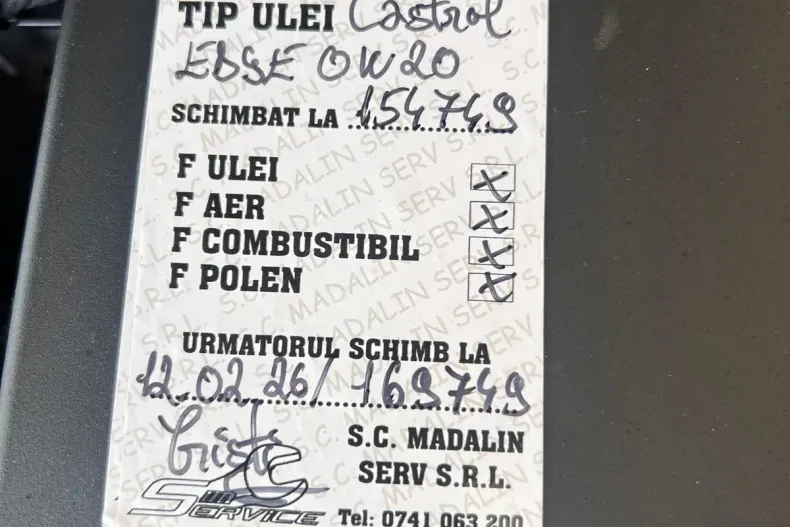 TIP ULEI Castrol
EDGE 0W20
SCHIMBAT LA 154749
F ULEI X
F AER X
F COMBUSTIBIL X
F POLEN X
URMATORUL SCHIMB LA
12.02.26/169749
S.C. MADALIN
SERV S.R.L.
SERVICE
Tel: 0741 063 200